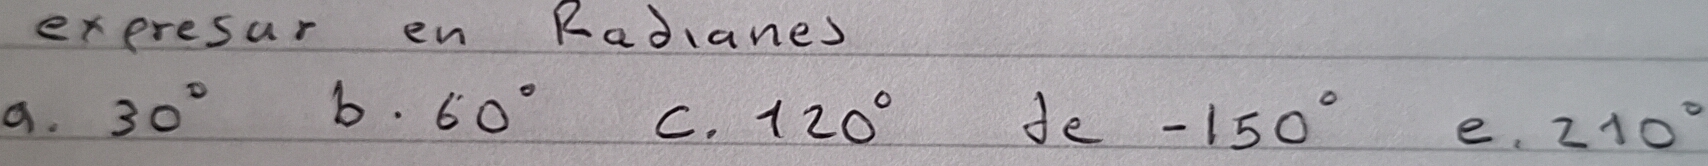 expresar en Radianes
a. 30° b. 60° c. 120° de -150° e. 210°